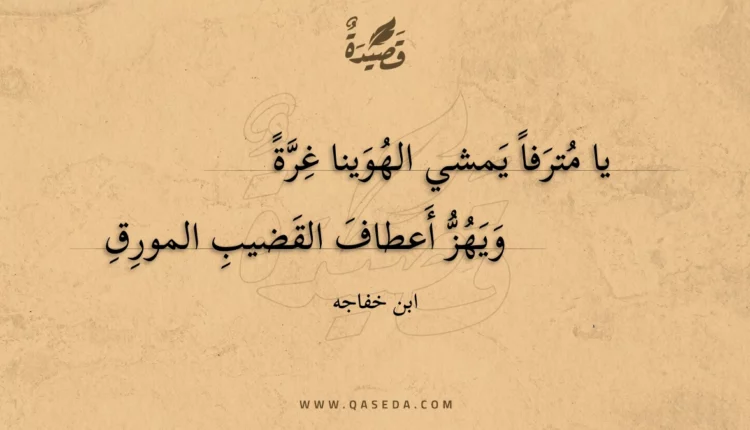 قَصِيدَةٌ
يا مُترَفاً يَمشي الهُوَينا غِرَّةً
وَيَهُزُّ أَعطافَ القَضيبِ المورِقِ
ابن خفاجه
WWW.QASEDA.COM